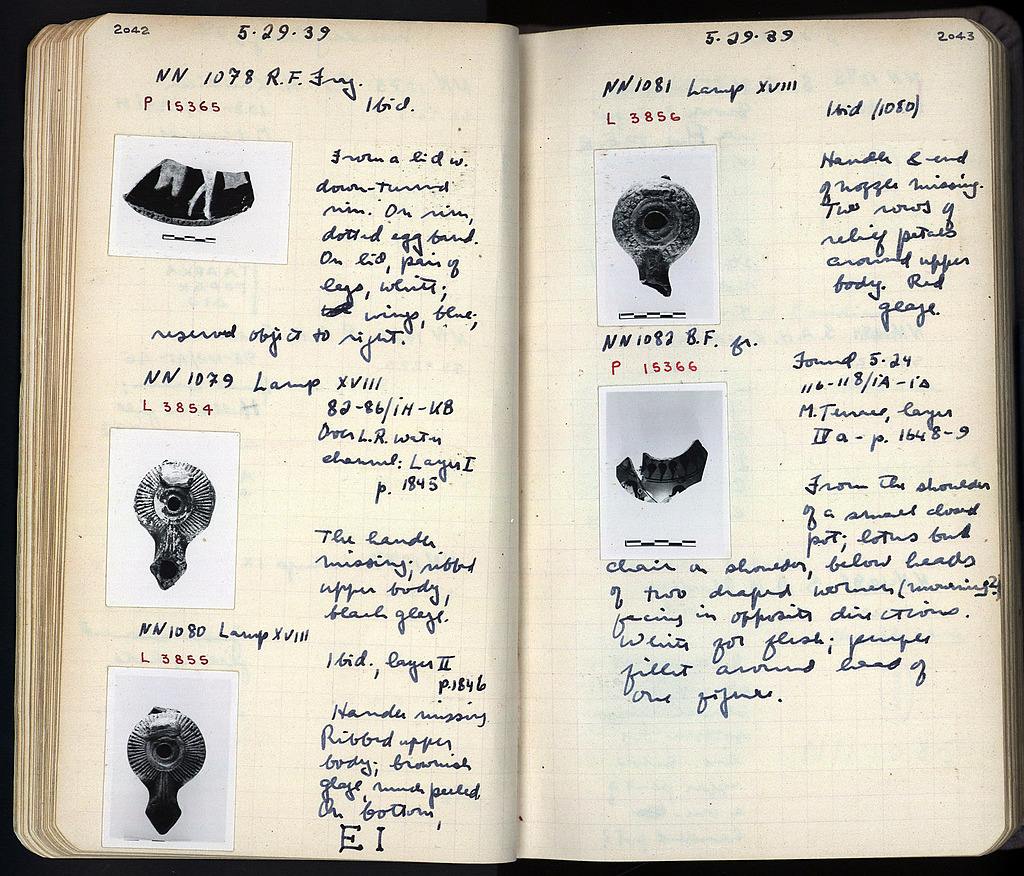 2042
5-29-39
NN 1078 R.F. Frag.
P 15365
Ibid.
From a lid w.
down-turned
rim. On rim,
dotted egg band.
On lid, pair of
legs, white;
wings, blue;
reserved object to right.
NN 1079 Lamp XVIII
L 3854
82-86/IH-KB
Over L.R. water
channel: Layer I
p. 1845
The handle
missing; ribbed
upper body,
black glaze.
NN 1080 Lamp XVIII
L 3855
Ibid; layer II
p. 1846
Handle missing
Ribbed upper
body; brownish
glaze, much peeled
On bottom,
E I
2043
5-29-39
NN 1081 Lamp XVIII
L 3856
Ibid (1080)
Handle & end
of nozzle missing.
Two rows of
relief petals
around upper
body. Red
glaze.
NN 1082 B.F. fr.
P 15366
Found 5-24
116-118/IA-IΔ
M. Terrace, layer
IV a - p. 1648-9
From the shoulder
of a small closed
pot; lotus bud
chain on shoulder, below heads
of two draped women (mourning?)
facing in opposite directions.
White for flesh; purple
fillet around head of
one figure.